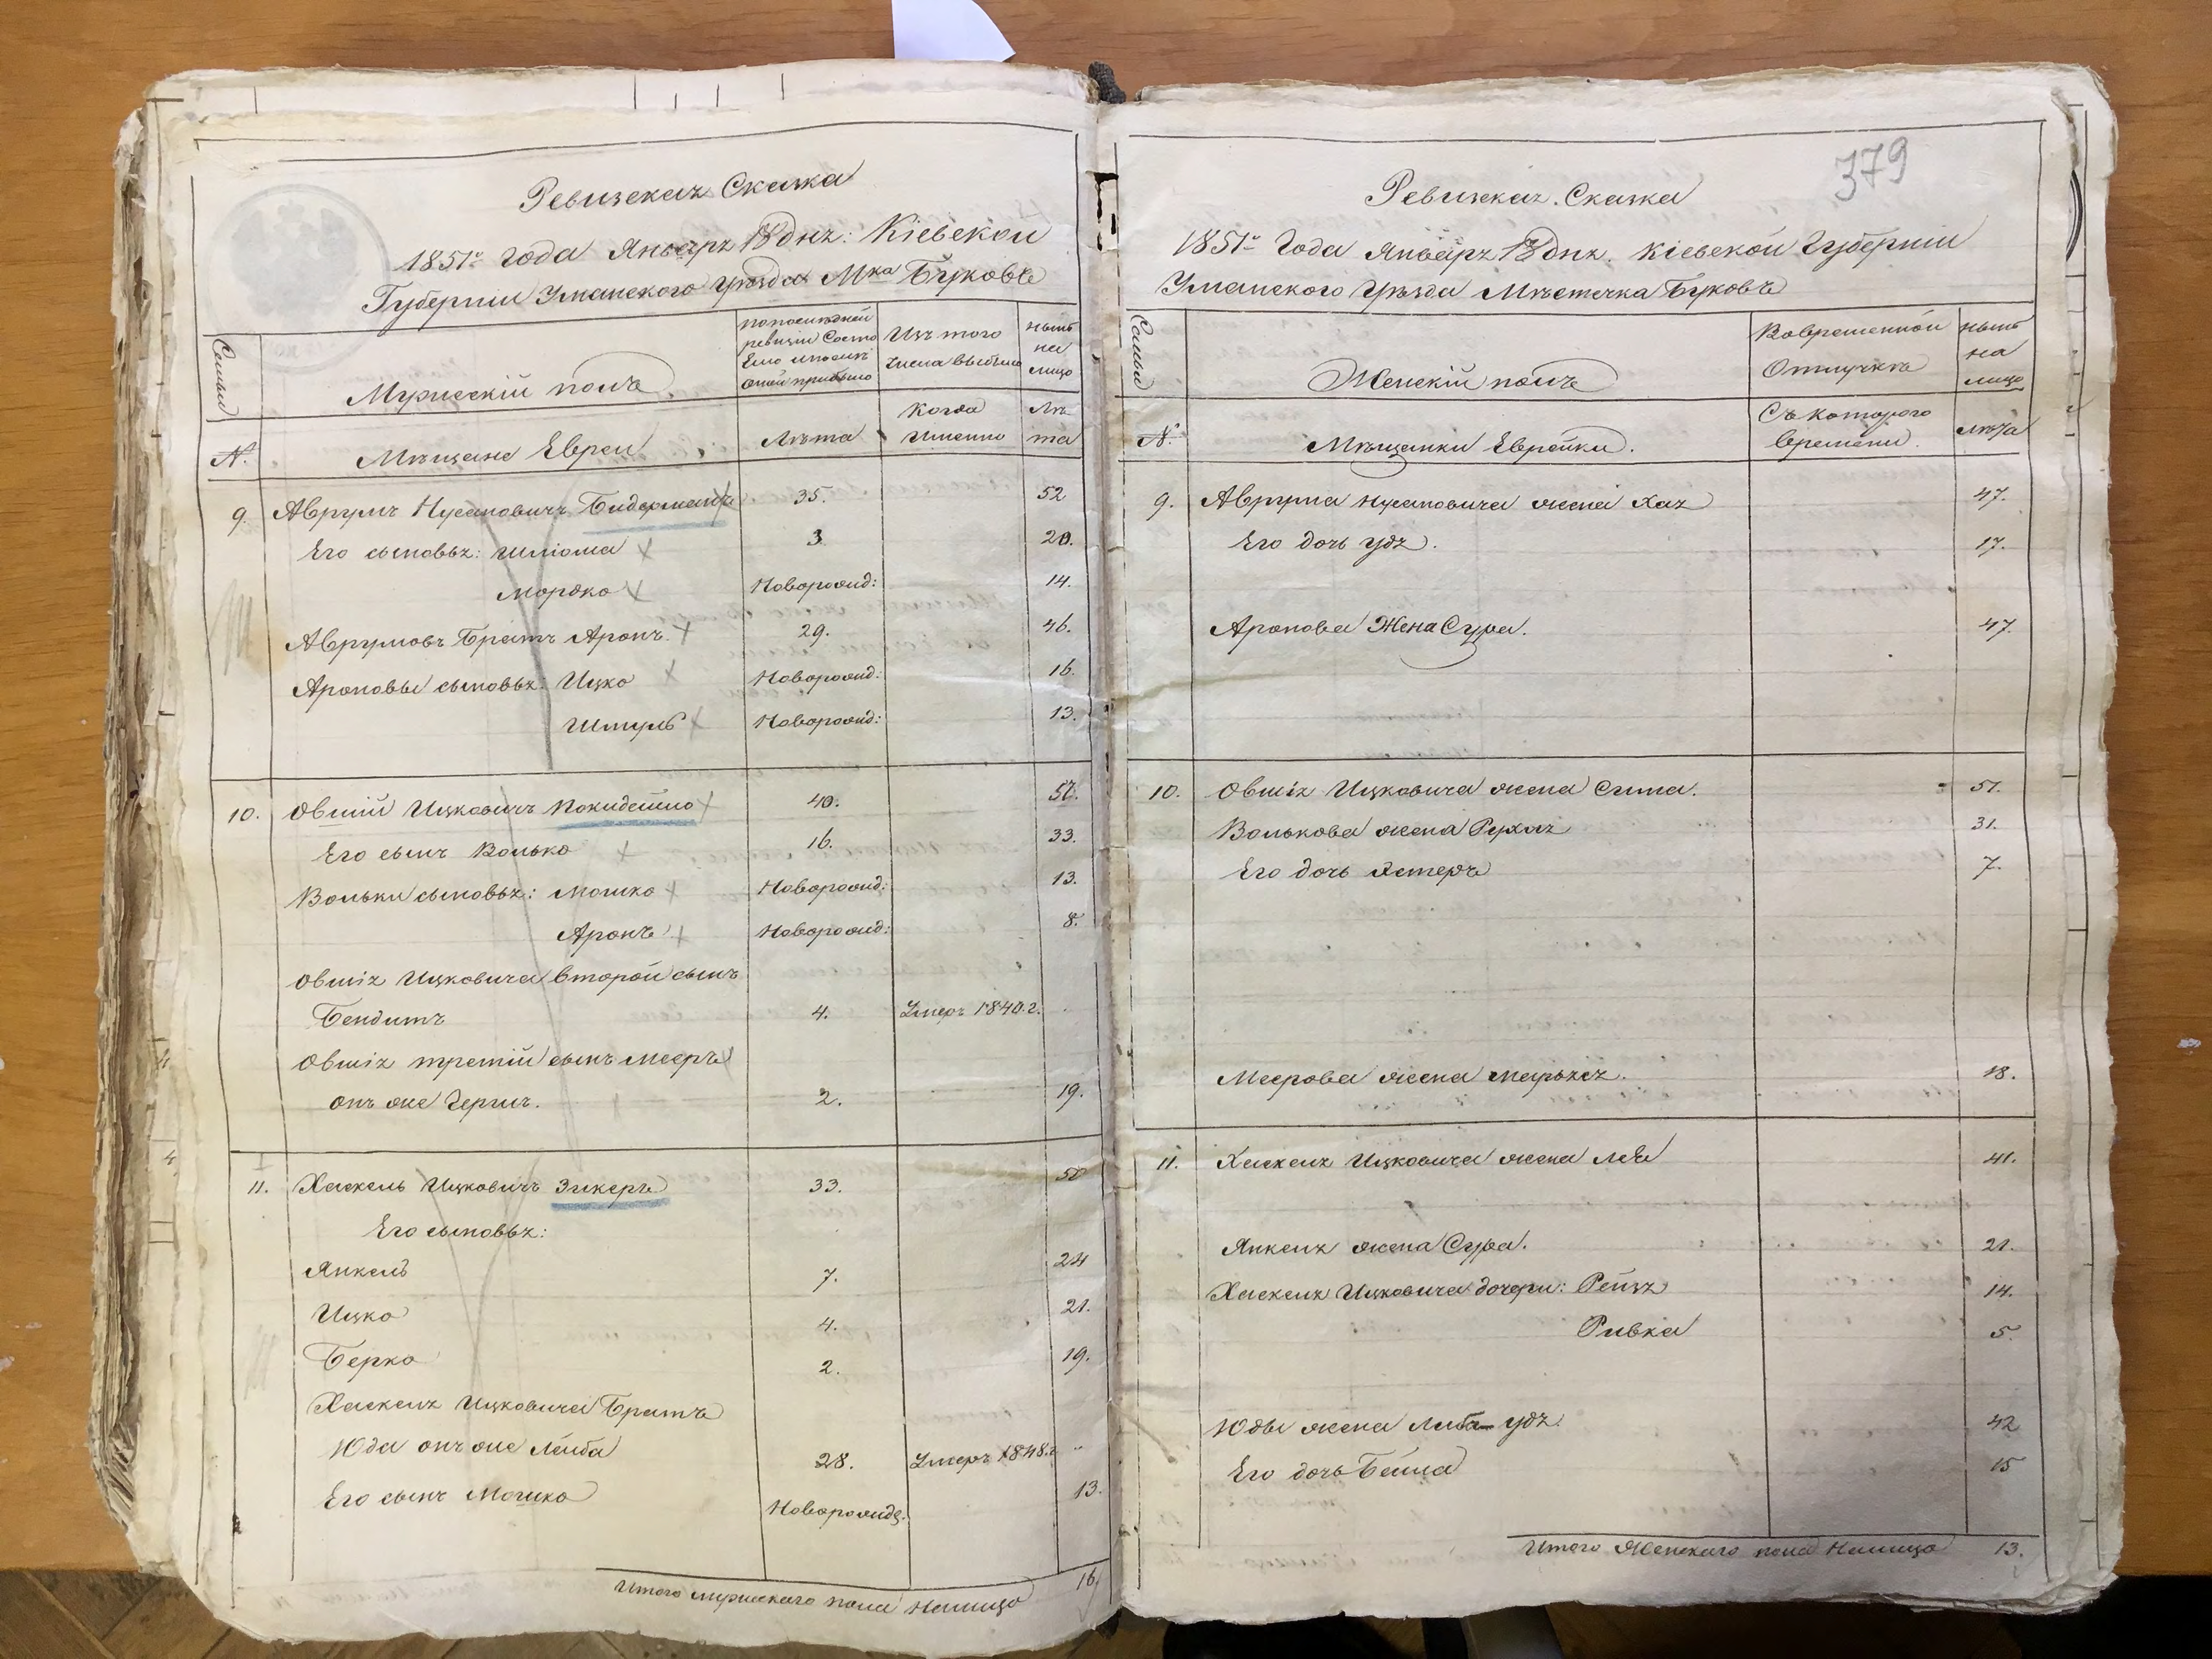 Ревизская Сказка
1851го Года Января 18 дня: Кіевской
Губерніи Уманского Уѣзда Мка Буковъ
Семьи
Мужескій полъ.
по послѣдней ревизіи состояло и послѣ оной прибыло
Изъ того числа выбыло
нынѣ на лицо
N.
Мѣщане Евреи
Лѣта
Когда именно
Лѣта
9. Аврумъ Нусановичъ Бидерманъ 35. 52
Его сыновья: Шліома 3 20.
Мордко Новорожд: 14.
Аврумовъ Братъ Аронъ 29. 46.
Ароновы сыновья: Ицко Новорожд: 16.
Шмуль Новорожд: 13.
10. Овшій Ицковичъ 40. 57.
Его сынъ Волько 16. 33.
Вольки сыновья: Мошко Новорожд: 13.
Аронъ Новорожд: 8.
Овшія Ицковича второй сынъ
Бендитъ 4. Умеръ 1840.г.
Овшія третій сынъ Мееръ
онъ же Гершъ. 2. 19.
11. Хаскель Ицковичъ Зикеръ 33. 50
Его сыновья:
Янкель 7. 24
Ицко 4. 21.
Берко 2. 19.
Хаскеля Ицковича Братъ
Юда онъ же Лейба 28. Умеръ 1848.г.
Его сынъ Мошко Новорожд: 13.
Итого мужескаго пола Налицо 16
379
Ревизская Сказка
1851го Года Января 18 дня. Кіевской Губерніи
Уманского Уѣзда Мѣстечка Буковъ
Семьи
Женскій полъ
Вовременной Отлучкѣ
нынѣ на лицо
N.
Мѣщанки Еврейки.
Съ которого времени.
лѣта
9. Аврума Нусановича жена Хая 47.
Его дочь Удя. 17.
Аронова Жена Сура. 47.
10. Овшія Ицковича жена Сима. 51.
Волькова жена Рухля 31.
Его дочь Эстеръ 7.
Меерова жена Марьяся. 18.
11. Хаскеля Ицковича жена Лея 41.
Янкеля жена Сура. 21.
Хаскеля Ицковича дочери: Рейзя 14.
Ривка 5.
Юды жена Либа-Удя. 42
Его дочь Бейла 15
Итого Женскаго пола Налицо 13.